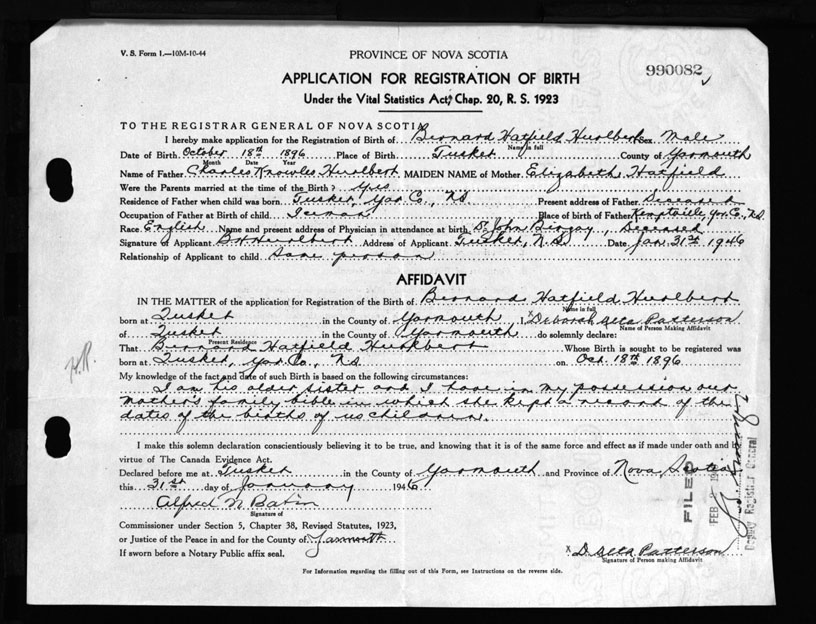 V. S. Form 1.—10M-10-44
PROVINCE OF NOVA SCOTIA
990082
APPLICATION FOR REGISTRATION OF BIRTH
Under the Vital Statistics Act, Chap. 20, R. S. 1923
TO THE REGISTRAR GENERAL OF NOVA SCOTIA
I hereby make application for the Registration of Birth of Bernard Hatfield Hurlbert Sex Male
Name in full
Date of Birth October 18th 1896 Place of Birth Tusket County of Yarmouth
Month Date Year
Name of Father Charles Knowles Hurlbert MAIDEN NAME of Mother Elizabeth Hatfield
Were the Parents married at the time of the Birth? Yes
Residence of Father when child was born Tusket, Yar. Co., N.S. Present address of Father Deceased
Occupation of Father at Birth of child Place of Birth of Father Yar. Co., N.S.
Race English Name and present address of Physician in attendance at birth Deceased
Signature of Applicant B. H. Hurlbert Address of Applicant Tusket, N.S. Date Jan. 31st 1946
Relationship of Applicant to child Same person
AFFIDAVIT
IN THE MATTER of the application for Registration of the Birth of Bernard Hatfield Hurlbert
Name in full
born at Tusket in the County of Yarmouth I, x Deborah Alta Patterson
Name of Person Making Affidavit
of Tusket in the County of Yarmouth do solemnly declare:
Present Residence
That Bernard Hatfield Hurlbert Whose Birth is sought to be registered was
born at Tusket, Yar. Co., N.S. on Oct. 18th 1896
My knowledge of the fact and date of such Birth is based on the following circumstances:
I am his older sister and I have in my possession our
mother's family bible in which she kept a record of the
dates of the births of us children.
I make this solemn declaration conscientiously believing it to be true, and knowing that it is of the same force and effect as if made under oath and by
virtue of The Canada Evidence Act.
Declared before me at Tusket in the County of Yarmouth and Province of Nova Scotia
this 31st day of January 1946
Alfred N
Signature of
Commissioner under Section 5, Chapter 38, Revised Statutes, 1923,
or Justice of the Peace in and for the County of Yarmouth
If sworn before a Notary Public affix seal.
x D. Alta Patterson
Signature of Person making Affidavit
For Information regarding the filling out of this Form, see Instructions on the reverse side.
FILED
FEB
Deputy Registrar General